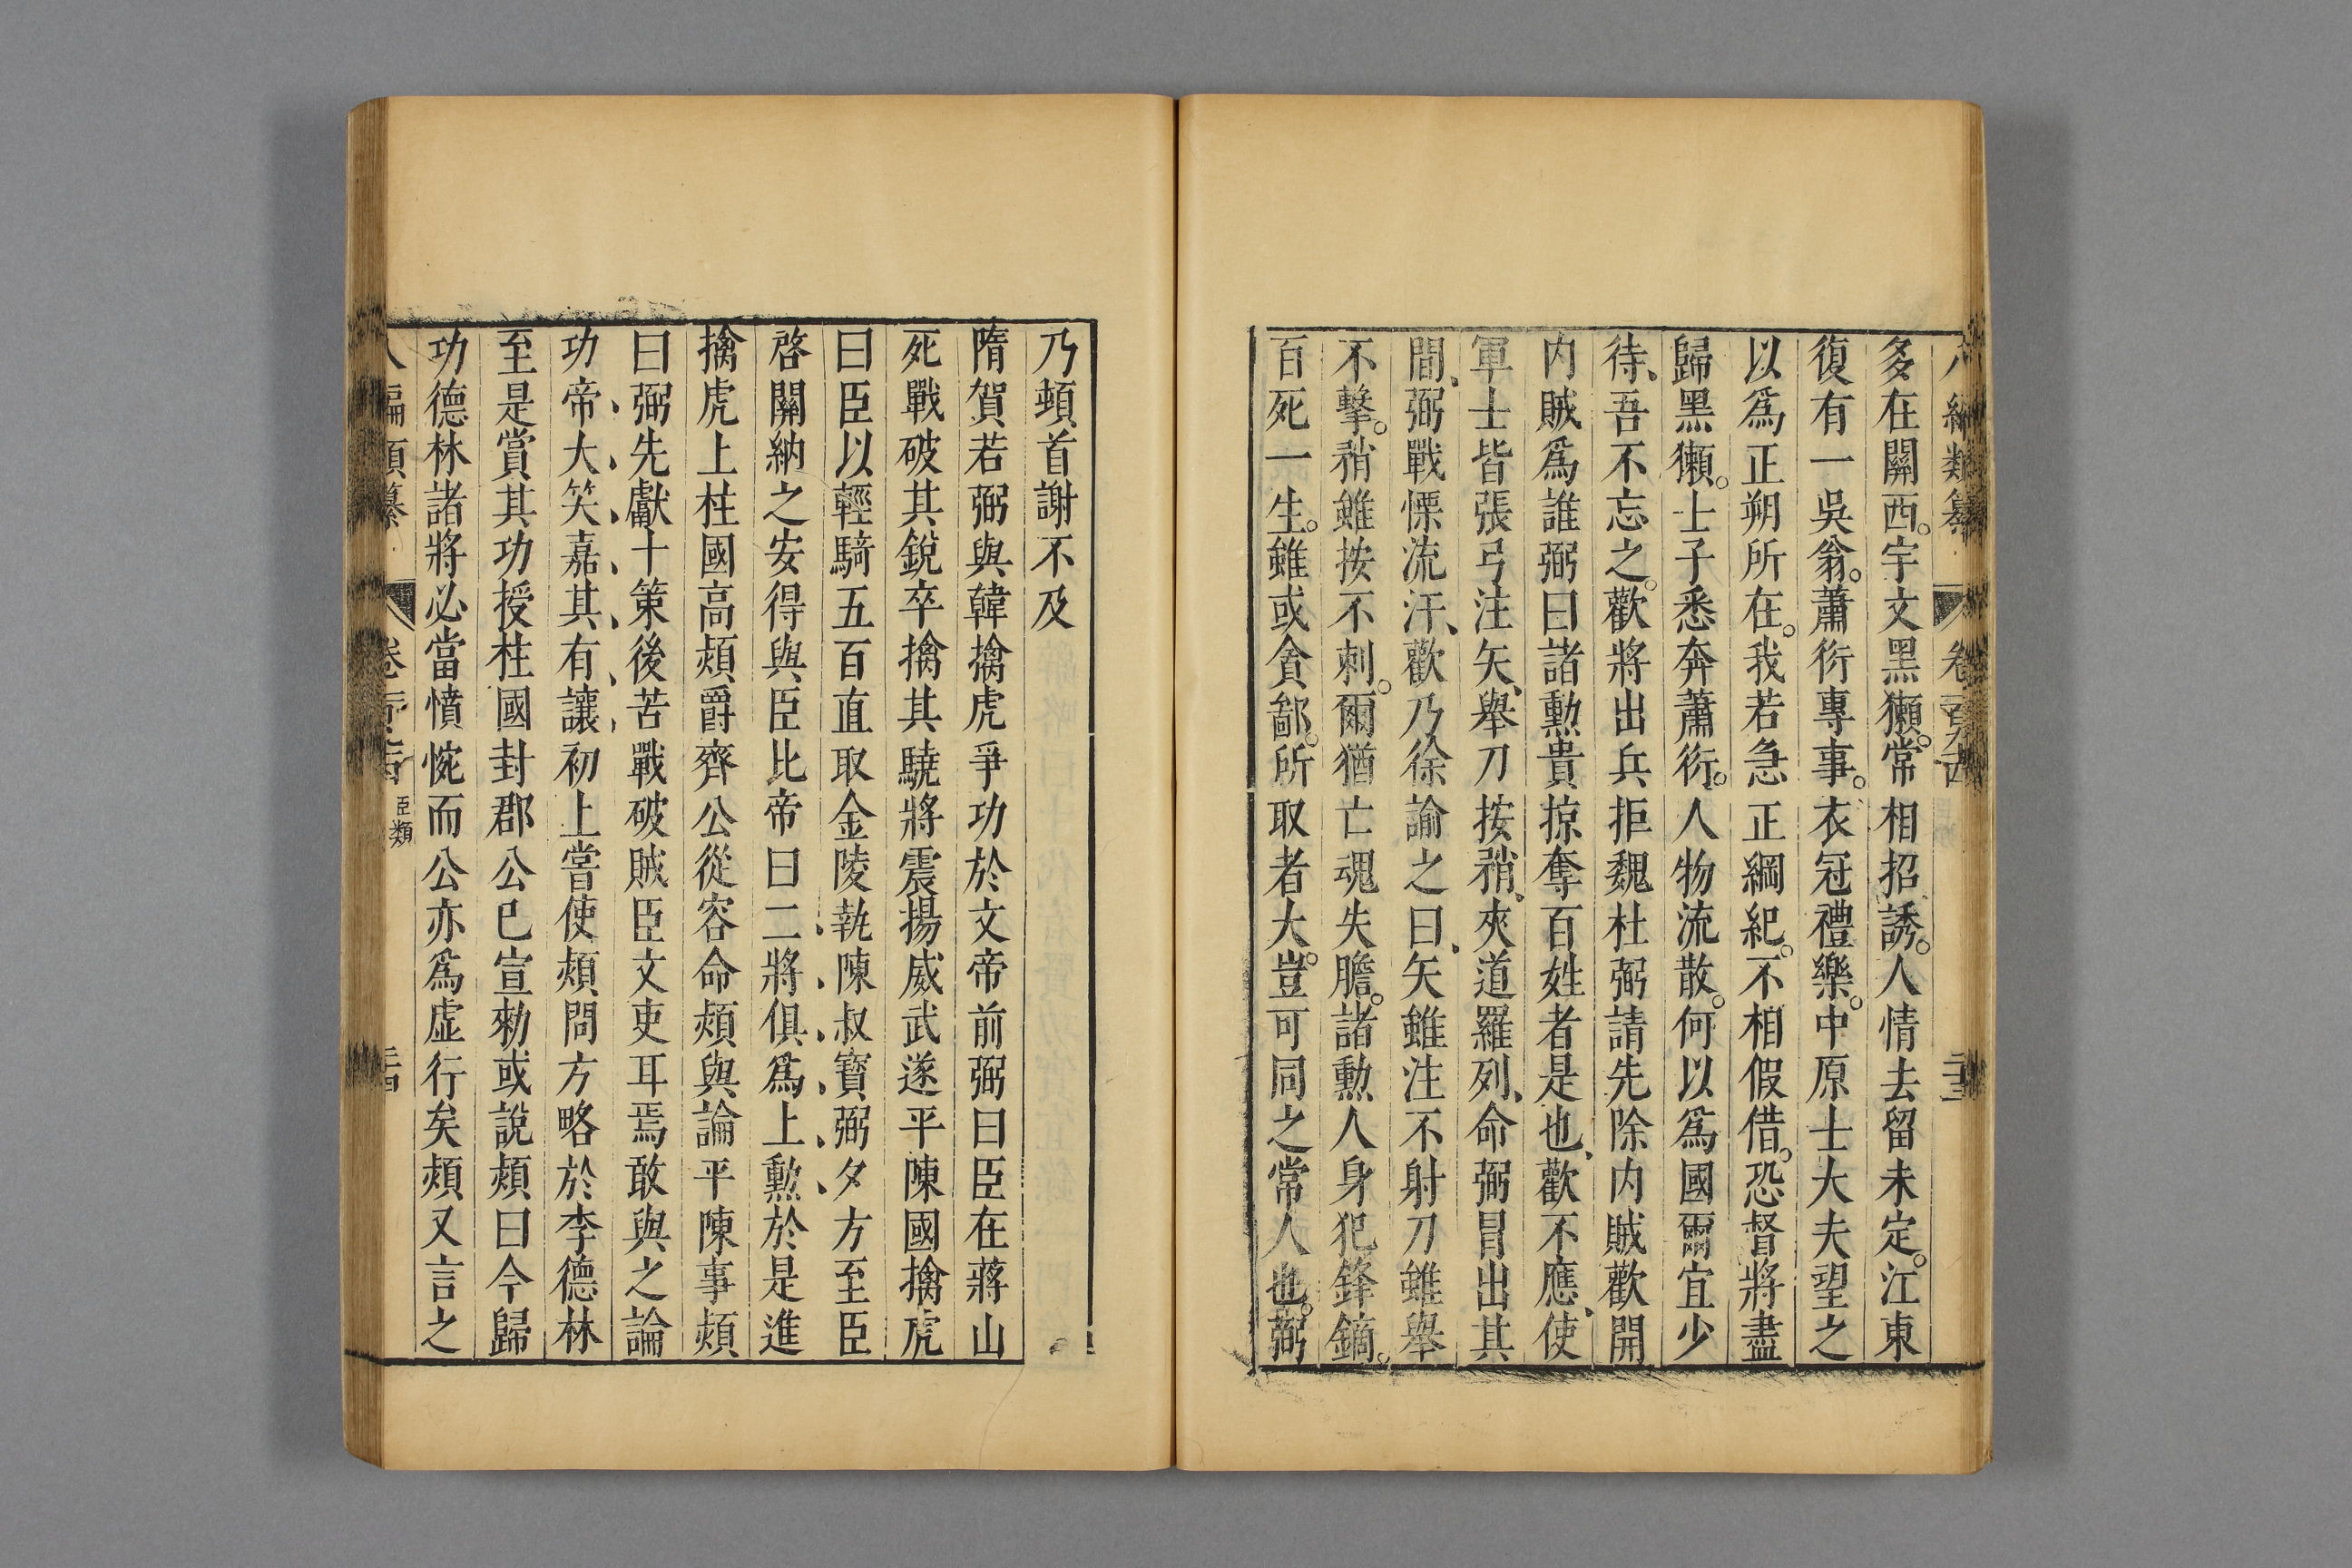 八編類纂 卷一百九十四 二十三
多在關西。宇文黑獺。常相招誘。人情去留未定。江東
復有一吳翁。蕭衍專事。衣冠禮樂。中原士大夫望之
以爲正朔所在。我若急正綱紀。不相假借。恐督將盡
歸黑獺。士子悉奔蕭衍。人物流散。何以爲國爾宜少
待、吾不忘之。歡將出兵拒魏杜弼請先除内賊歡開
内賊爲誰弼曰諸勲貴掠奪百姓者是也、歡不應、使
軍士皆張弓注矢、舉刀按矟、夾道羅列、命弼冒出其
間、弼戰慄流汗、歡乃徐諭之曰、矢雖注不射刀雖舉
不擊。矟雖按不刺。爾猶亡魂失膽。諸勲人身犯鋒鏑。
百死一生。雖或貪鄙。所取者大。豈可同之常人也。弼
乃頓首謝不及
隋賀若弼與韓擒虎爭功於文帝前弼曰臣在蔣山
死戰破其銳卒擒其驍將震揚威武遂平陳國擒虎
曰臣以輕騎五百直取金陵執陳叔寶弼夕方至臣
啓關納之安得與臣比帝曰二將俱爲上勲於是進
擒虎上柱國高熲爵齊公從容命熲與論平陳事熲
曰弼先獻十策後苦戰破賊臣文吏耳焉敢與之論
功、帝大笑嘉其有讓、初上嘗使熲問方略於李德林
至是賞其功授柱國封郡公已宣勑或說熲曰今歸
功德林諸將必當憤惋而公亦爲虛行矣熲又言之
八編類纂 卷一百九十四 臣類 二十四